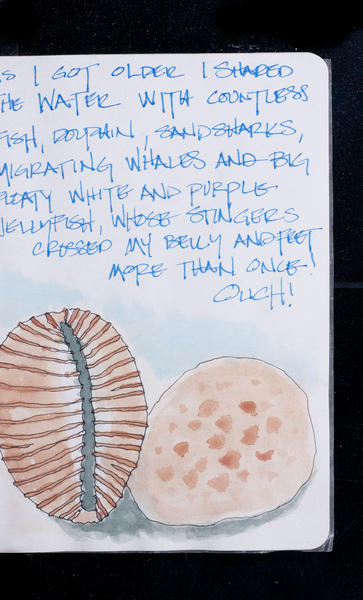 AS I GOT OLDER I SHARED
THE WATER WITH COUNTLESS
FISH, DOLPHIN, SANDSHARKS,
MIGRATING WHALES AND BIG
FLOATY WHITE AND PURPLE
JELLYFISH, WHOSE STINGERS
CROSSED MY BELLY AND FEET
MORE THAN ONCE!
OUCH!